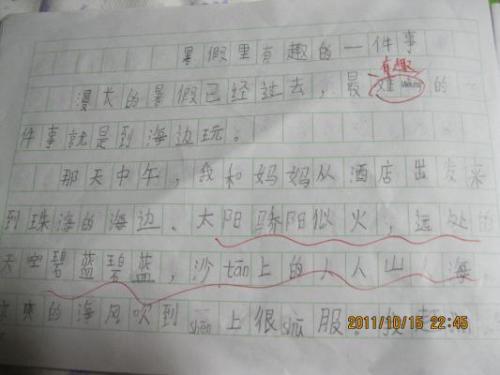 暑假里有趣的一件事
有趣
漫长的暑假已经过去，最难 的
件事就是到海边玩。
那天中午，我和妈妈从酒店出发来
到珠海的海边、太阳骄阳似火，远处的
天空碧蓝碧蓝，沙tān上的人人山人海，
爽的海风吹到shēn上很shū服。
2011/10/15 22:45